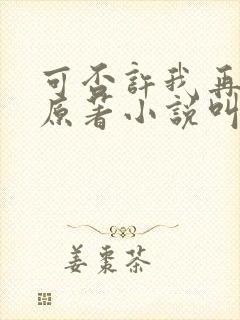 可否許我再
原著小說叫
姜棗茶